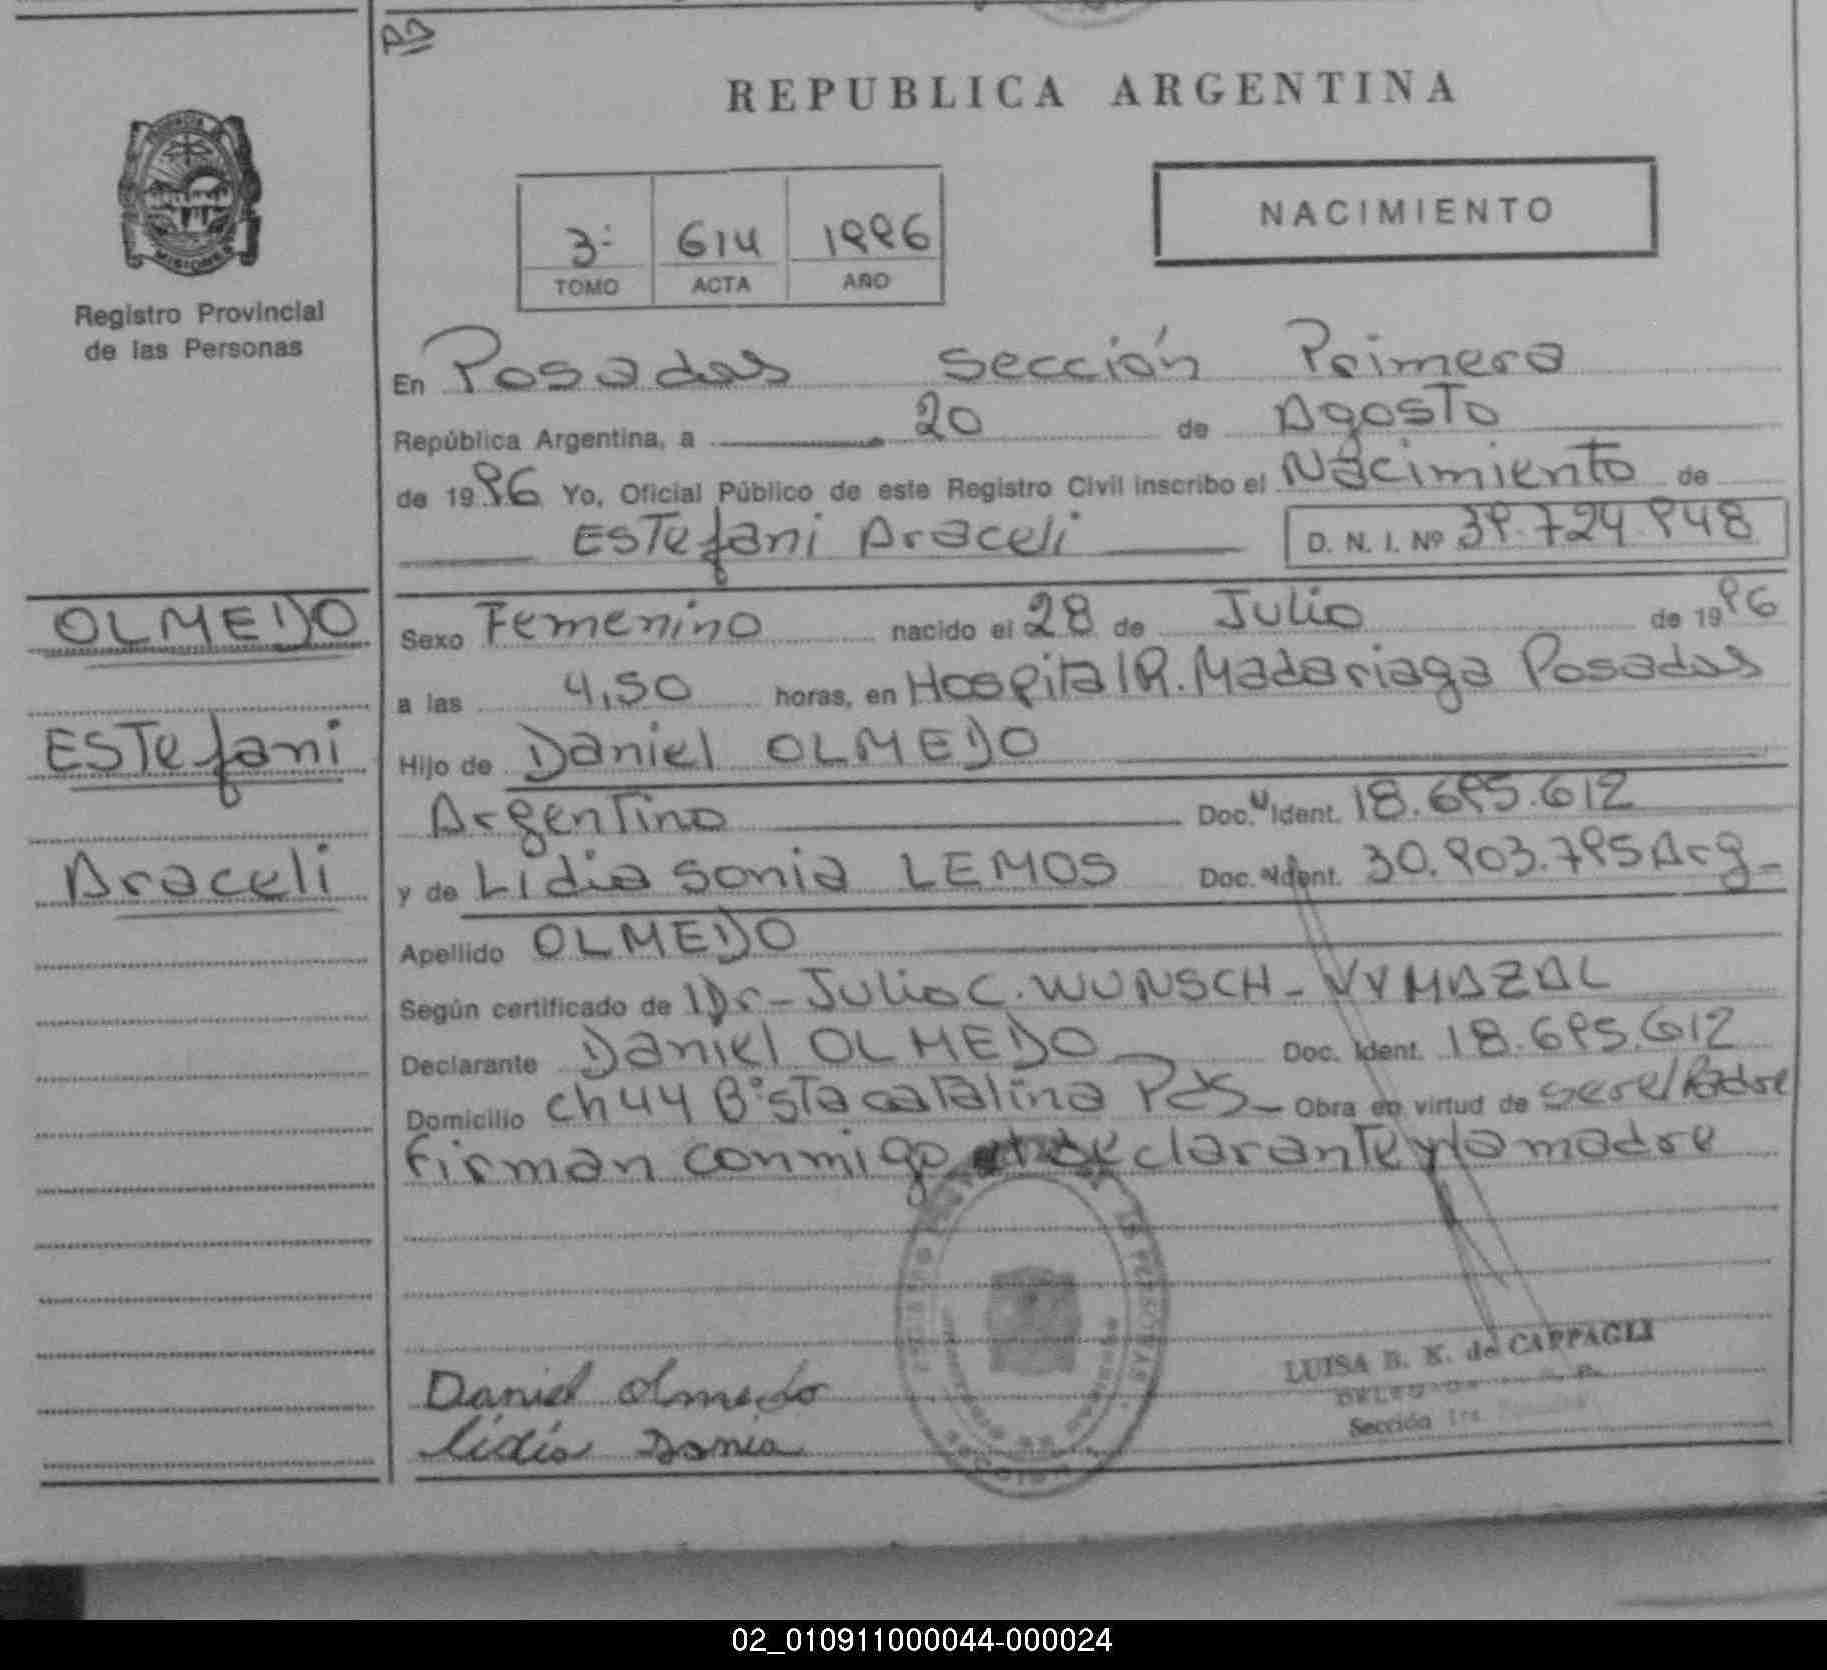 REPUBLICA ARGENTINA
MISIONES
Registro Provincial
de las Personas
3º 614 1996
TOMO ACTA AÑO
NACIMIENTO
En Posadas Sección Primera
República Argentina, a 20 de Agosto
de 1996 Yo, Oficial Público de este Registro Civil inscribo el Nacimiento de
Estefani Araceli D. N. I. Nº 39.724.948
OLMEDO
Estefani
Araceli
Sexo Femenino nacido el 28 de Julio de 1996
a las 4,50 horas, en Hospital R. Madariaga Posadas
Hijo de Daniel OLMEDO
Argentino Doc. Ident. 18.695.612
y de Lidia Sonia LEMOS Doc. Ident. 30.903.795 Arg
Apellido OLMEDO
Según certificado de Dr- Julio C. WUNSCH - VYMAZAL
Declarante Daniel OLMEDO Doc. Ident. 18.695.612
Domicilio Ch 44 Bº Sta Catalina Pds- Obra en virtud de ser el Padre
Firman conmigo declarante y la madre
Daniel Olmedo
Lidia Sonia
LUISA B. K. de CAPPAGLI
Sección 1ra.
02_010911000044-000024